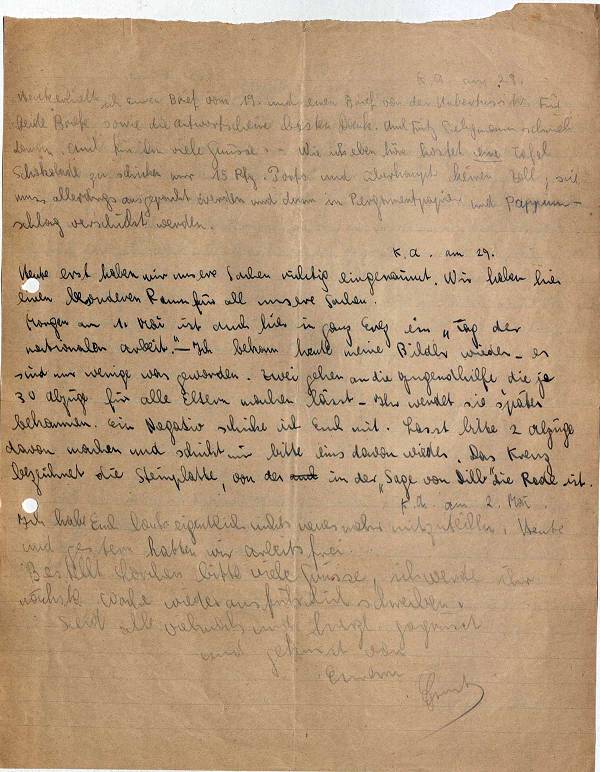 K.A. am 28.
Heute erhielt ich euren Brief vom 19. und einen Brief von der Für
beide Briefe sowie die Antwortscheine besten Dank. Auch Fritz schrieb
darin, auch für ihn viele Grüsse. - Wie ich eben höre kostet eine Tafel
Schokolade zu schicken nur 15 Pfg. Porto und überhaupt keinen Zoll, sie
muss allerdings ausgepackt werden und dann in Pergamentpapier und Pappum-
schlag verschickt werden.
K.A. am 29.
Heute erst haben wir unsere Sachen richtig eingeräumt. Wir haben hier
einen besonderen Raum für all unsere Sachen.
Morgen am 1. Mai ist auch hier in ganz Erez ein „Tag der
nationalen Arbeit." - Ich bekam heute meine Bilder wieder - es
sind nur wenige was geworden. Zwei gehen an die Jugendhilfe die je
30 Abzüge für alle Eltern machen lässt - Ihr werdet sie später
bekommen. Ein Negativ schicke ich Euch mit. Lasst bitte 2 Abzüge
davon machen und schickt mir bitte eins davon wieder. Das Kreuz
bezeichnet die Steinplatte, von der in der „Sage von Dilb" die Rede ist.
K.A. am 2. Mai.
Ich habe Euch heute eigentlich nichts neues mehr mitzuteilen. Heute
und gestern hatten wir arbeitsfrei.
Bestellt bitte viele Grüsse, ich werde ihr
nächste Woche wieder ausführlich schreiben.
Seid alle vielmals und herzl. gegrüsst
und geküsst von
Eurem
Ernst